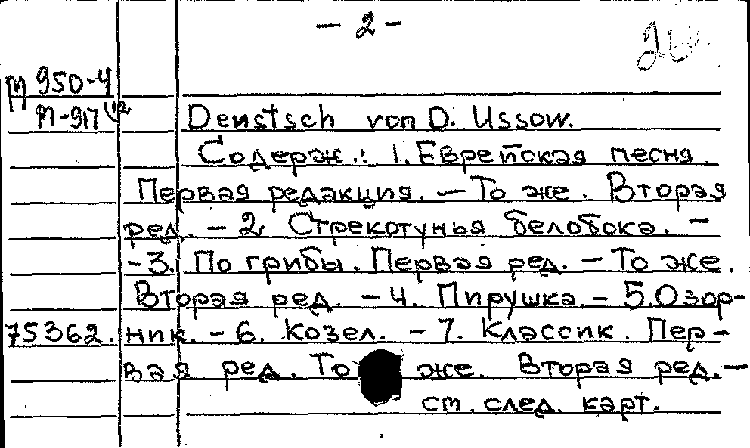 - 2 -
М 950-4
П-917
Denstsch von D. Ussow.
Содерж.: 1. Еврейская песня.
Первая редакция. - То же. Вторая
ред. - 2. Стрекотунья белобока. -
- 3. По грибы. Первая ред. - То же.
Вторая ред. - 4. Пирушка. - 5. Озор-
75362. ник. - 6. Козел. - 7. Классик. Пер-
вая ред. То же. Вторая ред. -
см. след. карт.